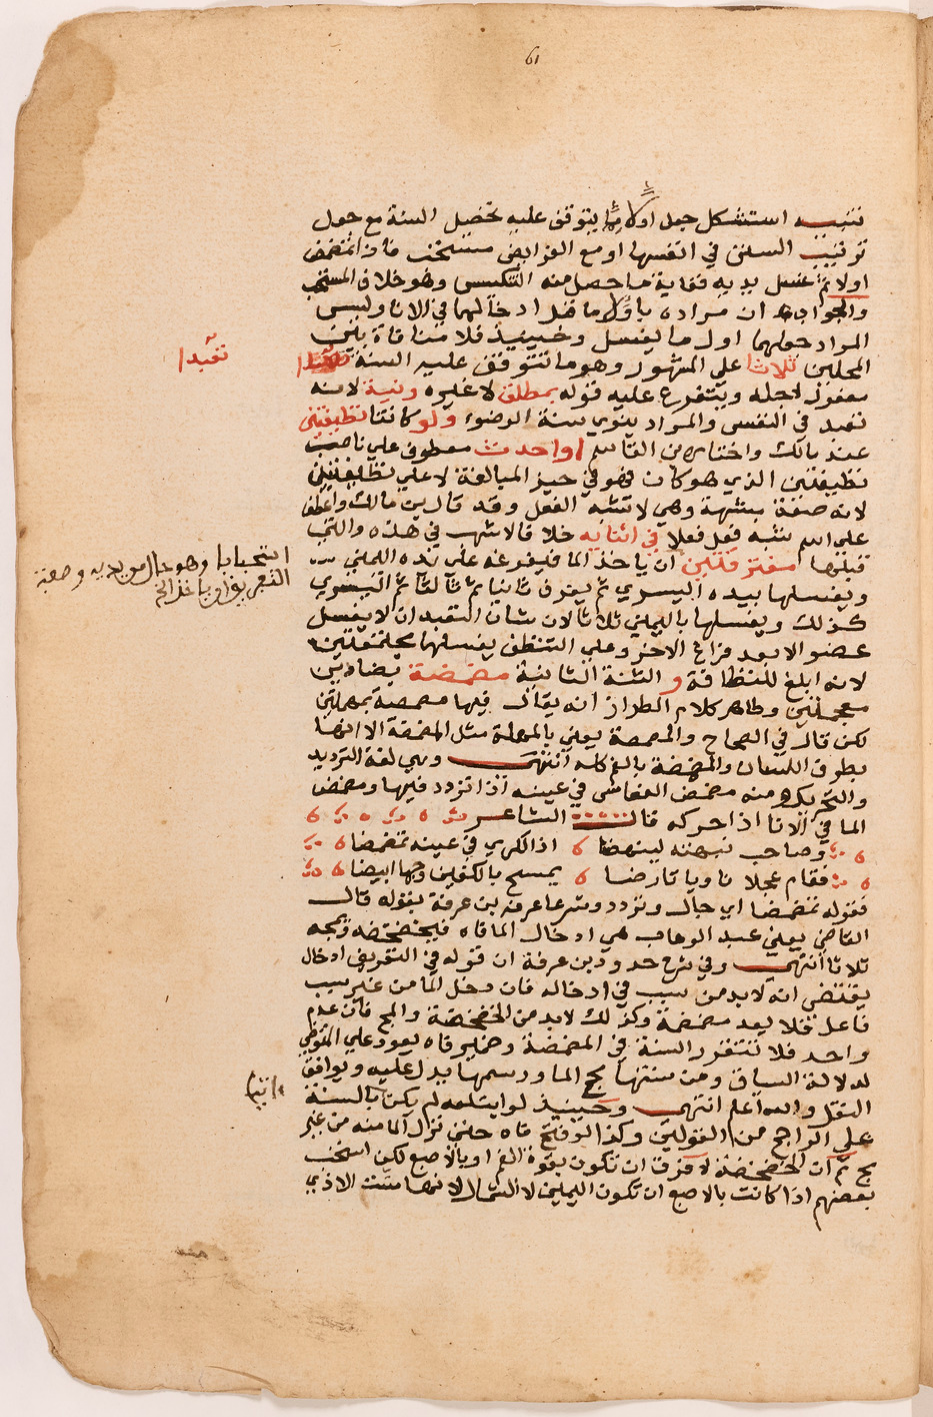 61
تنبيه استشكل جعل اولا مما يتوقف عليه تحصيل السنة مع جعل
ترتيب السنن في انفسها او مع الفرايض مستحب فاذا تمضمض
اولا ثم غسل يديه فغاية ما حصل منه التنكيس وهو خلاف المستحب
والجواب ان مراده باولا ما قبل ادخالهما في الانا وليس
المراد جعلهما اول ما يغسل وحينيذ فلا منافاة بين
المحلين ثلاثا علي المشهور وهو ما تتوقف عليه السنة
تعبدا
مفعول لاجله ويتفرع عليه قوله بمطلق لا غيره ونية لانه
تعبد في النفس والمراد ينوي سنة الوضوء ولو كانتا نظيفتين
عند مالك واختاره ابن القاسم او احدث معطوف علي ناصب
نظيفتين الذي هو كان فهو في حيز المبالغة لا علي نظيفتين
لانه صفة مشبهة وهي لا تشبه الفعل وقد قال ابن مالك واعطف
علي اسم شبه فعل فعلا في اثنايه خلافا لاشهب في هذه والتي
قبلها مفترقتين ان ياخذ الما فيفرغه علي يده اليمني
استحبابا وهو حال من يديه وصفة
ويغسلها بيده اليسري ثم يغرف ثانيا ثم ثالثا ثم اليسري
كذلك ويغسلها باليمني ثلاثا لان شان التعبد ان لا يغسل
عضو الا بعد فراغ الاخر وعلي التنظف يغسلهما مجتمعتين
لانه ابلغ للنظافة والسنة الثانية مضمضة بضادين
معجمتين وظاهر كلام الطراز انه يقال فيها مصمصة بمهملتين
لكن قال في الصحاح والمصمصة يعني بالمهملة مثل المضمضة الا انها
بطرف اللسان والمضمضة بالفم كله انتهي وهي لغة الترديد
والتحريك ومنه مضمض النعاس في عينه اذا تردد فيها ومضمض
الما في الانا اذا حركه قال الشاعر
وصاحب نبهته لينهضا اذا الكري في عينه تمضمضا
فقام عجلا نا وما تارضا يمسح بالكفين وجها ابيضا
فقوله تمضمضا اي جال وتردد وشرعا عرفه ابن عرفة بقوله قال
القاضي يعني عبد الوهاب هي ادخال الما فاه فيخضخضه ويمجه
ثلاثا انتهي وفي شرح حدود ابن عرفة ان قوله في التعريف ادخال
يقتضي انه لا بد من سبب في ادخاله فان دخل الما من غير سبب
فاعل فلا يعد مضمضة وكذلك لابد من الخضخضة والمج فان عدم
واحد فلا تتقرر السنة في المضمضة وضمير فاه يعود علي المتوضي
لدلالة السياق ومن سنتها مج الما ورسمها يدل عليه ويوافق
النقل والله اعلم انتهي وحينيذ لو ابتلعه لم يكن آتيا بالسنة
علي الراجح من القولين وكذا لو فتح فاه حتي نزل الما منه من غير
مج ثم ان الخضخضة لا فرق ان تكون بقوة الفم او بالاصبع لكن استحب
بعضهم اذا كانت بالاصبع ان تكون اليمني لا الشمال لانها مست الاذي